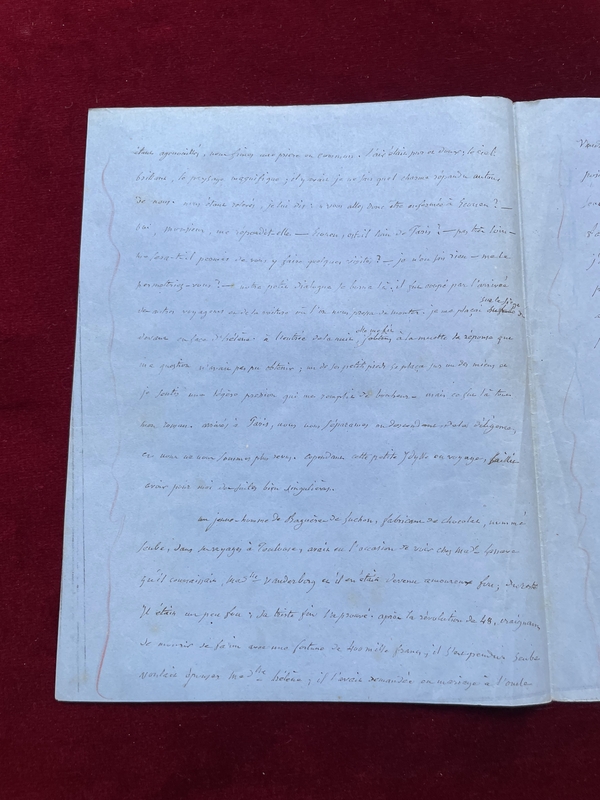 étant agenouillés, nous fîmes une prière en commun. l'air était pur et doux, le soleil
brillant, le paysage magnifique, il y avait je ne sais quel charme répandu autour
de nous. nous étant relevés, je lui dis: vous allez donc être enfermée à Ecouen? —
oui, monsieur, me répondit-elle — Ecouen, est-il loin de Paris? — pas très loin —
me sera-t-il permis de vous y faire quelques visites? — je n'en sais rien — me le
permettriez-vous? — notre petit dialogue se borna là; il fut coupé par l'arrivée
des autres voyageurs et de la voiture où l'on nous pressa de monter. je me plaçai sur le siège de
devant en face d'hélène à l'entrée de la nuit, j'attendais à la muette la réponse que
ma question n'avait pas pu obtenir; un de ses petits pieds se plaça sur un des miens et
je sentis une légère pression qui me remplit de bonheur. mais ce fut là tout
mon roman. arrivés à Paris, nous nous séparâmes en descendant de la diligence,
et nous ne nous sommes plus revus. cependant cette petite Idylle en voyage, faillit
avoir pour moi des suites bien singulières.
un jeune-homme de Bagnère de Luchon, fabricant de chocolat, nommé
Soube, dans un voyage à Toulouse, avait eu l'occasion de voir chez mad.
qu'il connaissait, mad.lle Vanderberg et il en était devenu amoureux fou; du reste
Il était un peu fou; sa triste fin l'a prouvé. après la révolution de 48, craignant
de mourir de faim avec une fortune de 400 mille francs, il s'est pendu. Soube
voulait épouser mad.lle hélène; il l'avait demandée en mariage à l'oncle